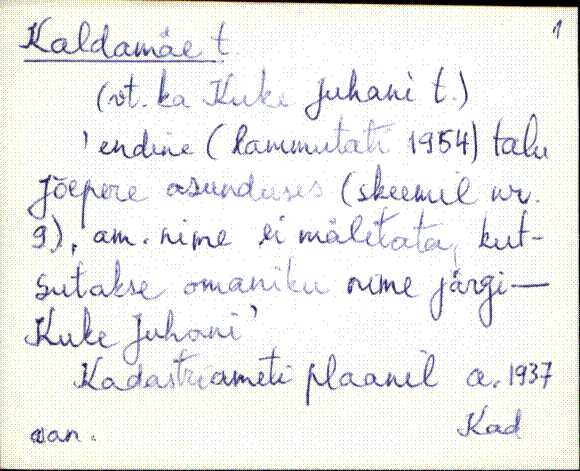 1
Kaldamäe t.
(vt. ka Kuke Juhani t.)
'endine (lammutati 1954) talu
Jõepere asunduses (skeemil nr.
9), am. nime ei mäletata, kut-
sutakse omaniku nime järgi—
Kuke Juhani'
Kadastriameti plaanil a. 1937
Kad